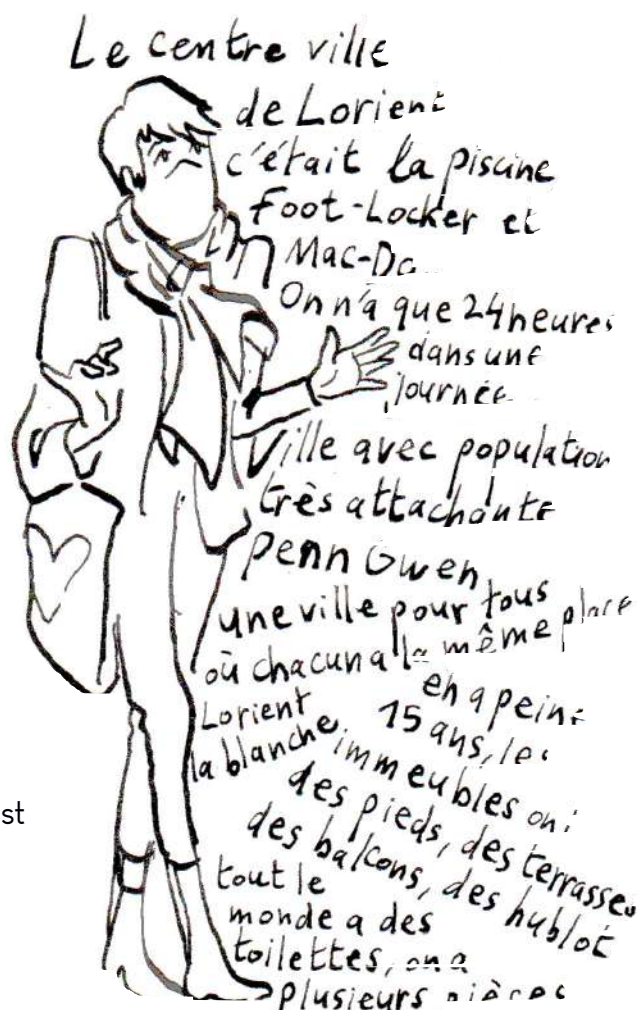 Le centre ville
de Lorient
c'était la piscine
Foot-Locker et
Mac-Do
On n'a que 24 heures
dans une
journée
Ville avec population
très attachante
Penn Gwen
une ville pour tous
où chacun a la même place
Lorient
la blanche
en a peine
15 ans, les
immeubles ont
des pieds, des terrasses
des balcons, des hublot
st
tout le
monde a des
toilettes, on a
plusieurs pièces